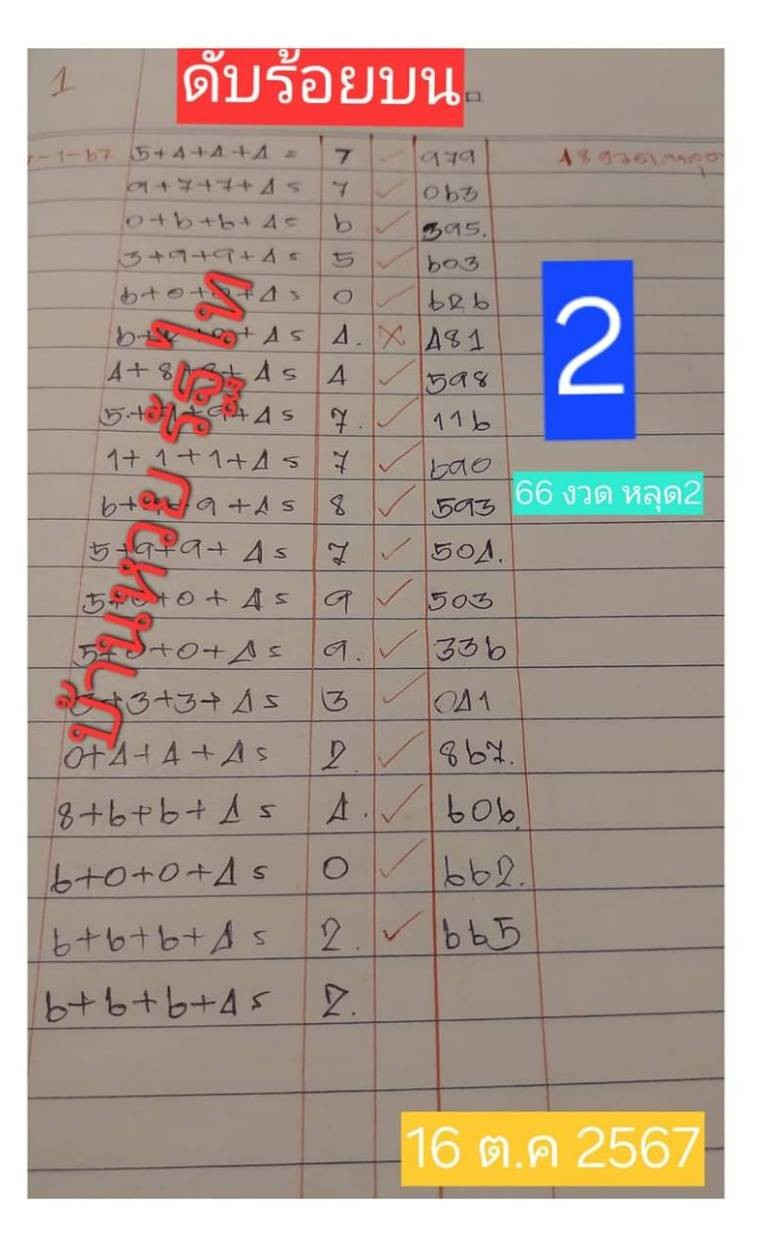 1
ดับร้อยบน
5+4+4+4= 7 ✓ 979
9+7+7+4= 7 ✓ 063
0+6+6+4= 6 ✓ 395.
3+9+9+4= 5 ✓ 603
6+0+0+4= 0 ✓ 626
4. × 481
2
4+8+8+4= 4 ✓ 598
5+9+9+4= 7. ✓ 116
1+1+1+4= 7 ✓ 690
6+9+9+4= 8 ✓ 593
66 งวด หลุด2
5+9+9+4= 7 ✓ 504.
5+0+0+4= 9 ✓ 503
5+0+0+4= 9. ✓ 336
3+3+3+4= 3 ✓ 041
0+4+4+4= 2. ✓ 867.
8+6+6+4= 4. ✓ 606.
6+0+0+4= 0 ✓ 662.
6+6+6+4= 2. ✓ 665
6+6+6+4= 2.
บ้านหวย รัฐไท
16 ต.ค 2567